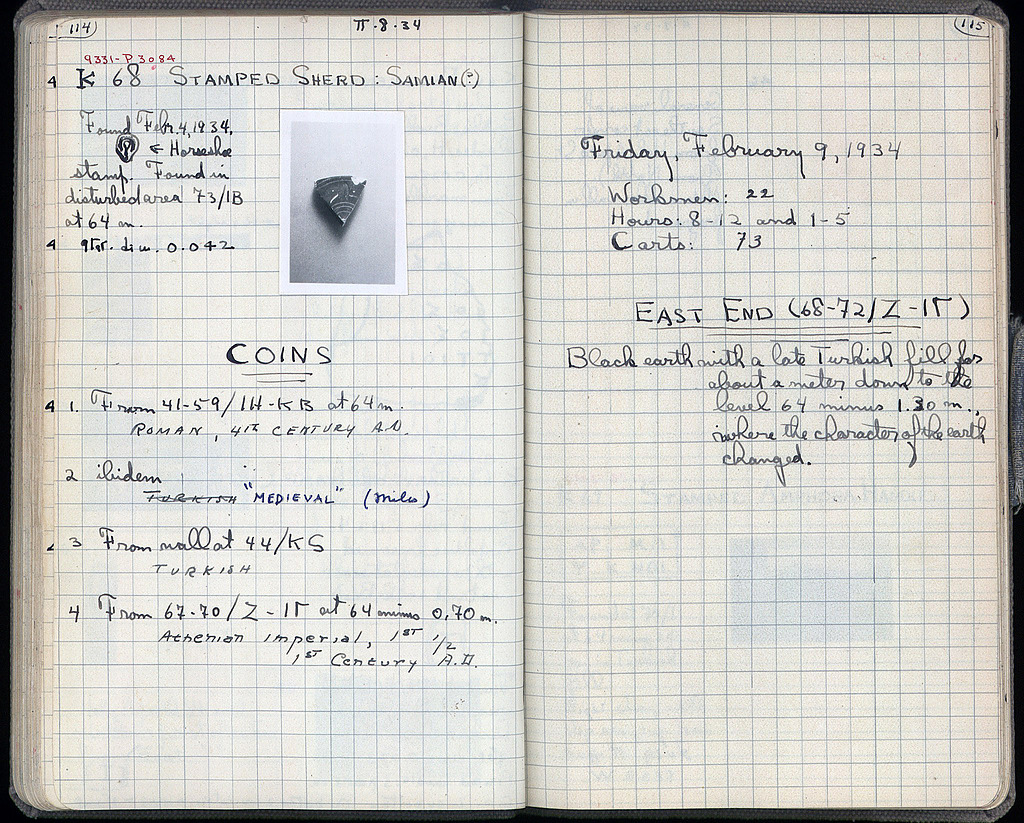 114
II-8-34
9331-P 3084
4 K 68 STAMPED SHERD: SAMIAN(?)
Found Feb. 4, 1934.
& Horseshoe
stamp. Found in
disturbed area 73/IB
at 64 m.
4 gr. dim. 0.042
COINS
4 1. From 41-59/IH-KB at 64 m.
ROMAN, 4TH CENTURY A.D.
2 ibidem
TURKISH "MEDIEVAL" (Miles)
3 From wall at 44/KS
TURKISH
4 From 67-70/Z-IΓ at 64 minus 0,70 m.
Athenian Imperial, 1ST 1/2
1ST Century A.D.
115
Friday, February 9, 1934
Workmen: 22
Hours: 8-12 and 1-5
Carts: 73
EAST END (68-72/Z-IΓ)
Black earth with a late Turkish fill for
about a meter down to the
level 64 minus 1.30 m.,
where the character of the earth
changed.